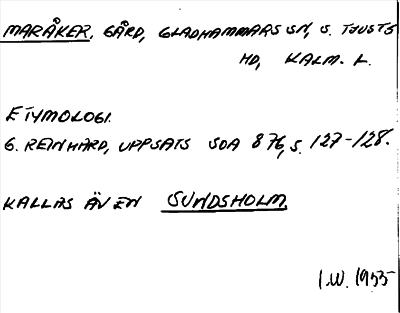 MARÅKER, GÅRD, GLADHAMMARS SN, S. TJUSTS
HD, KALM. L.
ETYMOLOGI.
G. REINHARD, UPPSATS SOA 876, S. 127-128.
KALLAS ÄVEN SUNDSHOLM.
I.W. 1955